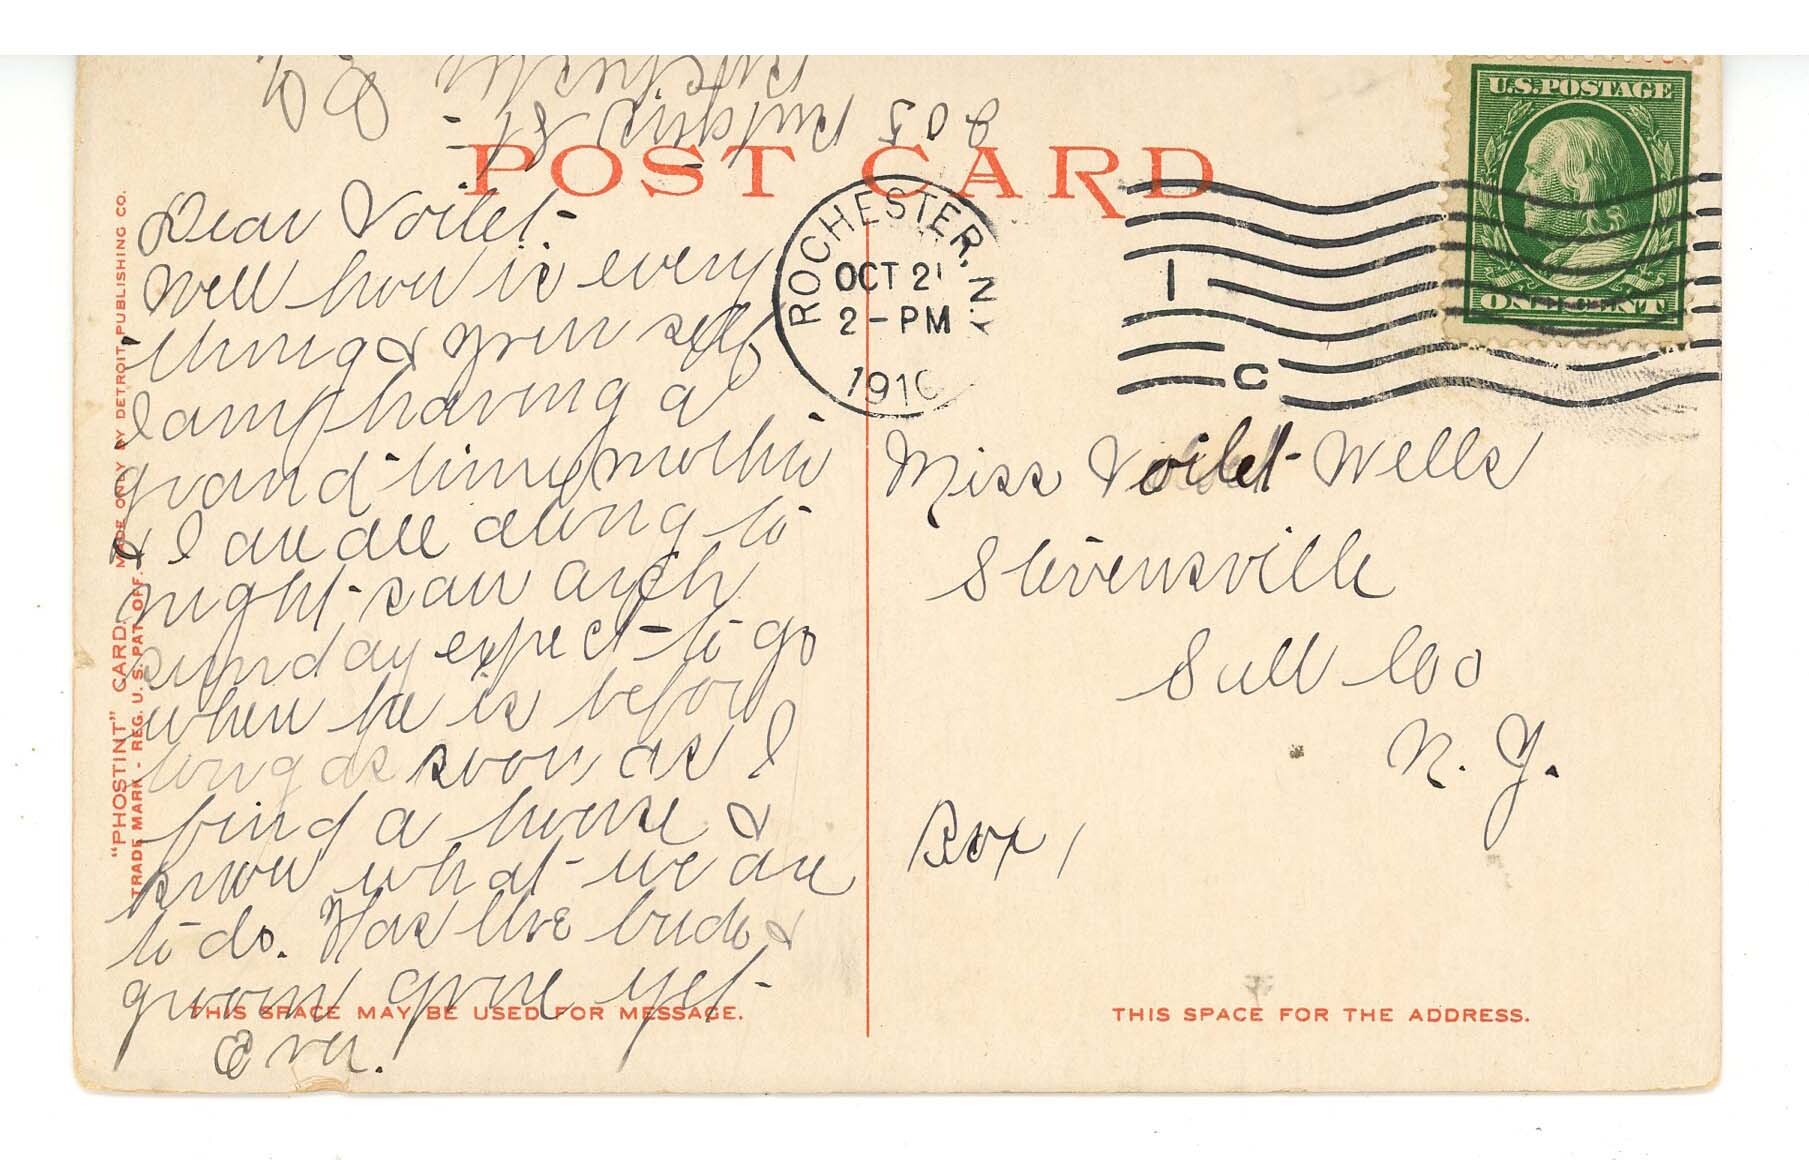 N.Y.
Rochester
205 St -
POST CARD
U.S. POSTAGE
ONE CENT
ROCHESTER, N.Y.
OCT 21
2 - PM
1910
1
C
Dear Voilet -
Well how is every
thing & your self
I am having a
grand time mother
& I are all along to
night - saw arch
sunday expect to go
where he is before
long as soon as I
find a house &
know what we are
to do. Has the bride &
groom gone yet -
Eva.
Miss Voilet Wells
Stevensville
Sull Co
N. Y.
Box 1
THIS SPACE MAY BE USED FOR MESSAGE.
THIS SPACE FOR THE ADDRESS.
"PHOSTINT" CARD. MADE ONLY BY DETROIT PUBLISHING CO.
TRADE MARK - REG. U. S. PAT. OFF.